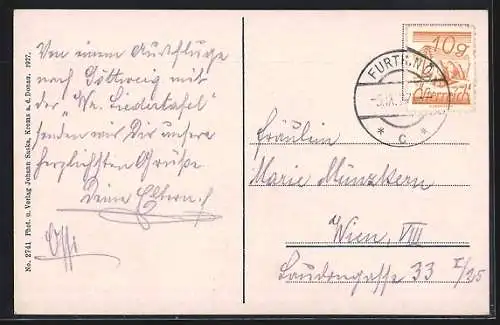 Von einem Ausfluge
nach Göttweig mit
der "Wr. Liedertafel"
senden wir Dir unsere
herzlichsten Grüße
Deine Eltern!
Ossi
No. 2741 Phot. u. Verlag Johann Saska, Krems a. d. Donau. 1927.
FURTH, N.Ö.
* c *
10g
Österreich
Fräulein
Marie Münzkern
Wien, VIII
Laudongasse 33 I/25